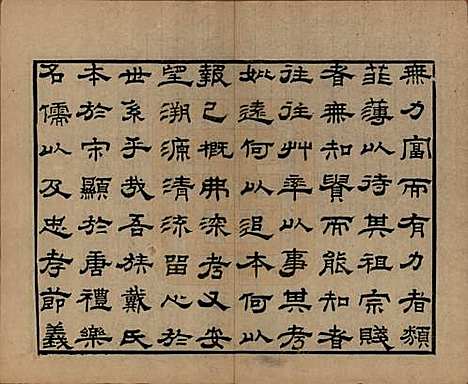 無力富而有力者類
菲薄以待其祖宗賤
者無知賢而能知者
往往艸率以事其考
妣遠何以追本何以
報已概弗深考又安
望溯源清流留心於
世系乎哉吾族戴氏
本於宋顯於唐禮樂
名儒以及忠孝節義